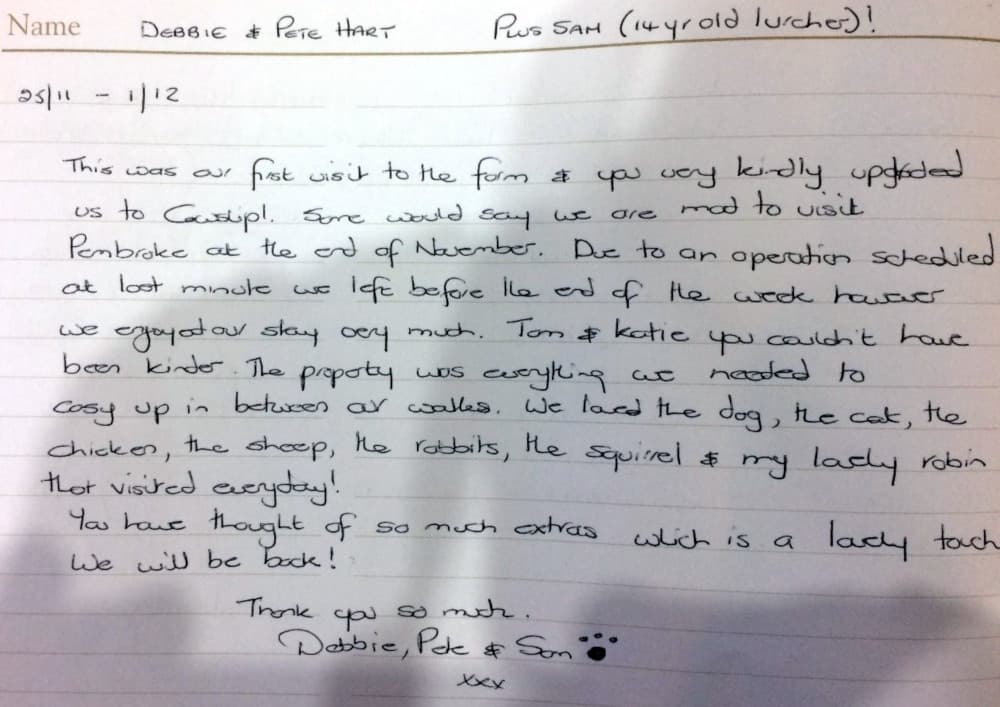 Name DEBBIE & PETE HART PLUS SAM (14 yr old lurcher)!
25/11 - 1/12
This was our first visit to the farm & you very kindly upgraded
us to Cowslip!. Some would say we are mad to visit
Pembroke at the end of November. Due to an operation scheduled
at last minute we left before the end of the week however
we enjoyed our stay very much. Tom & Katie you couldn't have
been kinder. The property was everything we needed to
cosy up in between our walks. We loved the dog, the cat, the
chicken, the sheep, the rabbits, the squirrel & my lovely robin
that visited everyday!
You have thought of so much extras which is a lovely touch
We will be back!
Thank you so much.
Debbie, Pete & Sam
xxx